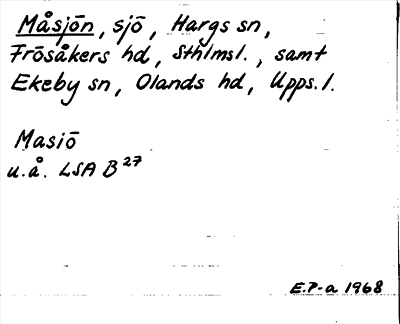 Måsjön, sjö, Hargs sn,
Frösåkers hd, Sthlmsl., samt
Ekeby sn, Olands hd, Upps. l.
Masiö
u.å. LSA B 27
E.P-a 1968